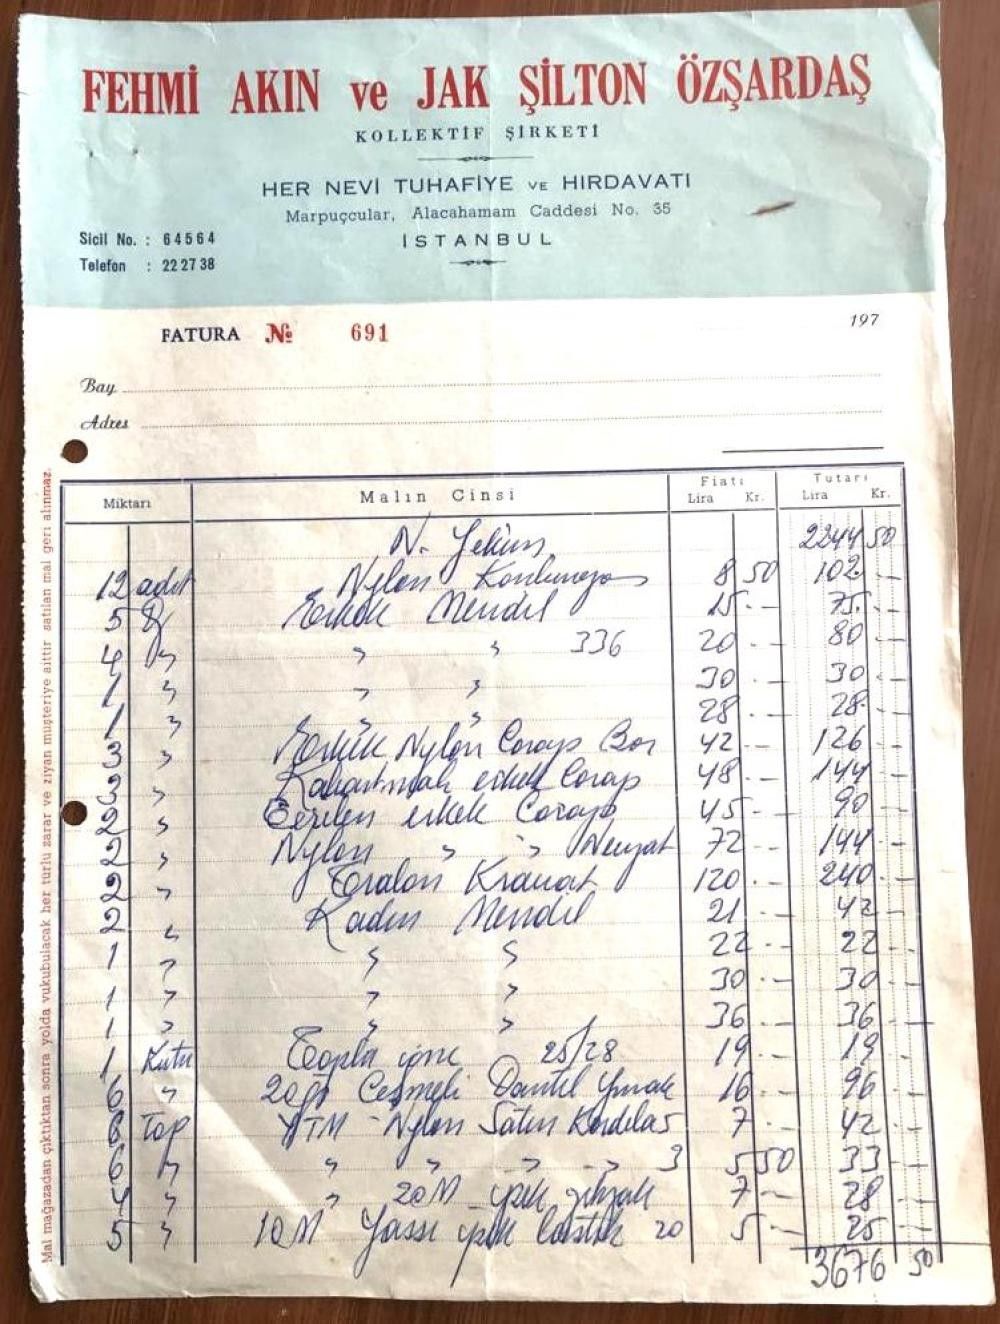 FEHMİ AKIN ve JAK ŞİLTON ÖZŞARDAŞ
KOLLEKTİF ŞİRKETİ
HER NEVİ TUHAFİYE VE HIRDAVATI
Marpuççular, Alacahamam Caddesi No. 35
Sicil No. : 64564
İSTANBUL
Telefon : 22 27 38
FATURA № 691
197
Bay
Adres
Miktarı Malın Cinsi Fiatı Lira Kr. Tutarı Lira Kr.
N. Yekün 2244 50
12 adet Nylon 8 50 102 -
5 Erkek Mendil 15 - 75 -
4 " " " 336 20 80 -
1 " " " 30 - 30 -
1 " " " 28 - 28 -
3 " Erkek Nylon Çorap Bor 42 - 126 -
3 " Kabartmalı erkek Çorap 48 - 144 -
2 " erkek Çorap 45 - 90 -
2 " Nylon " " 72 - 144 -
2 " Kravat 120 - 240 -
2 " Kadın Mendil 21 - 42 -
1 " " " 22 - 22 -
1 " " " 30 - 30 -
1 " " " 36 - 36 -
1 Kutu Topla iğne 25/28 19 - 19 -
6 " Çeşmeli Dantel 16 - 96 -
6 Top Nylon Satin Kordela 5 7 - 42 -
6 " " " " " 3 5 50 33 -
4 " " 20 M ipek 7 - 28 -
5 " 10 M Yassı ipek lastik 20 5 - 25 -
3676 50
Mal mağazadan çıktıktan sonra yolda vukubulacak her türlü zarar ve ziyan müşteriye aittir satılan mal geri alınmaz.